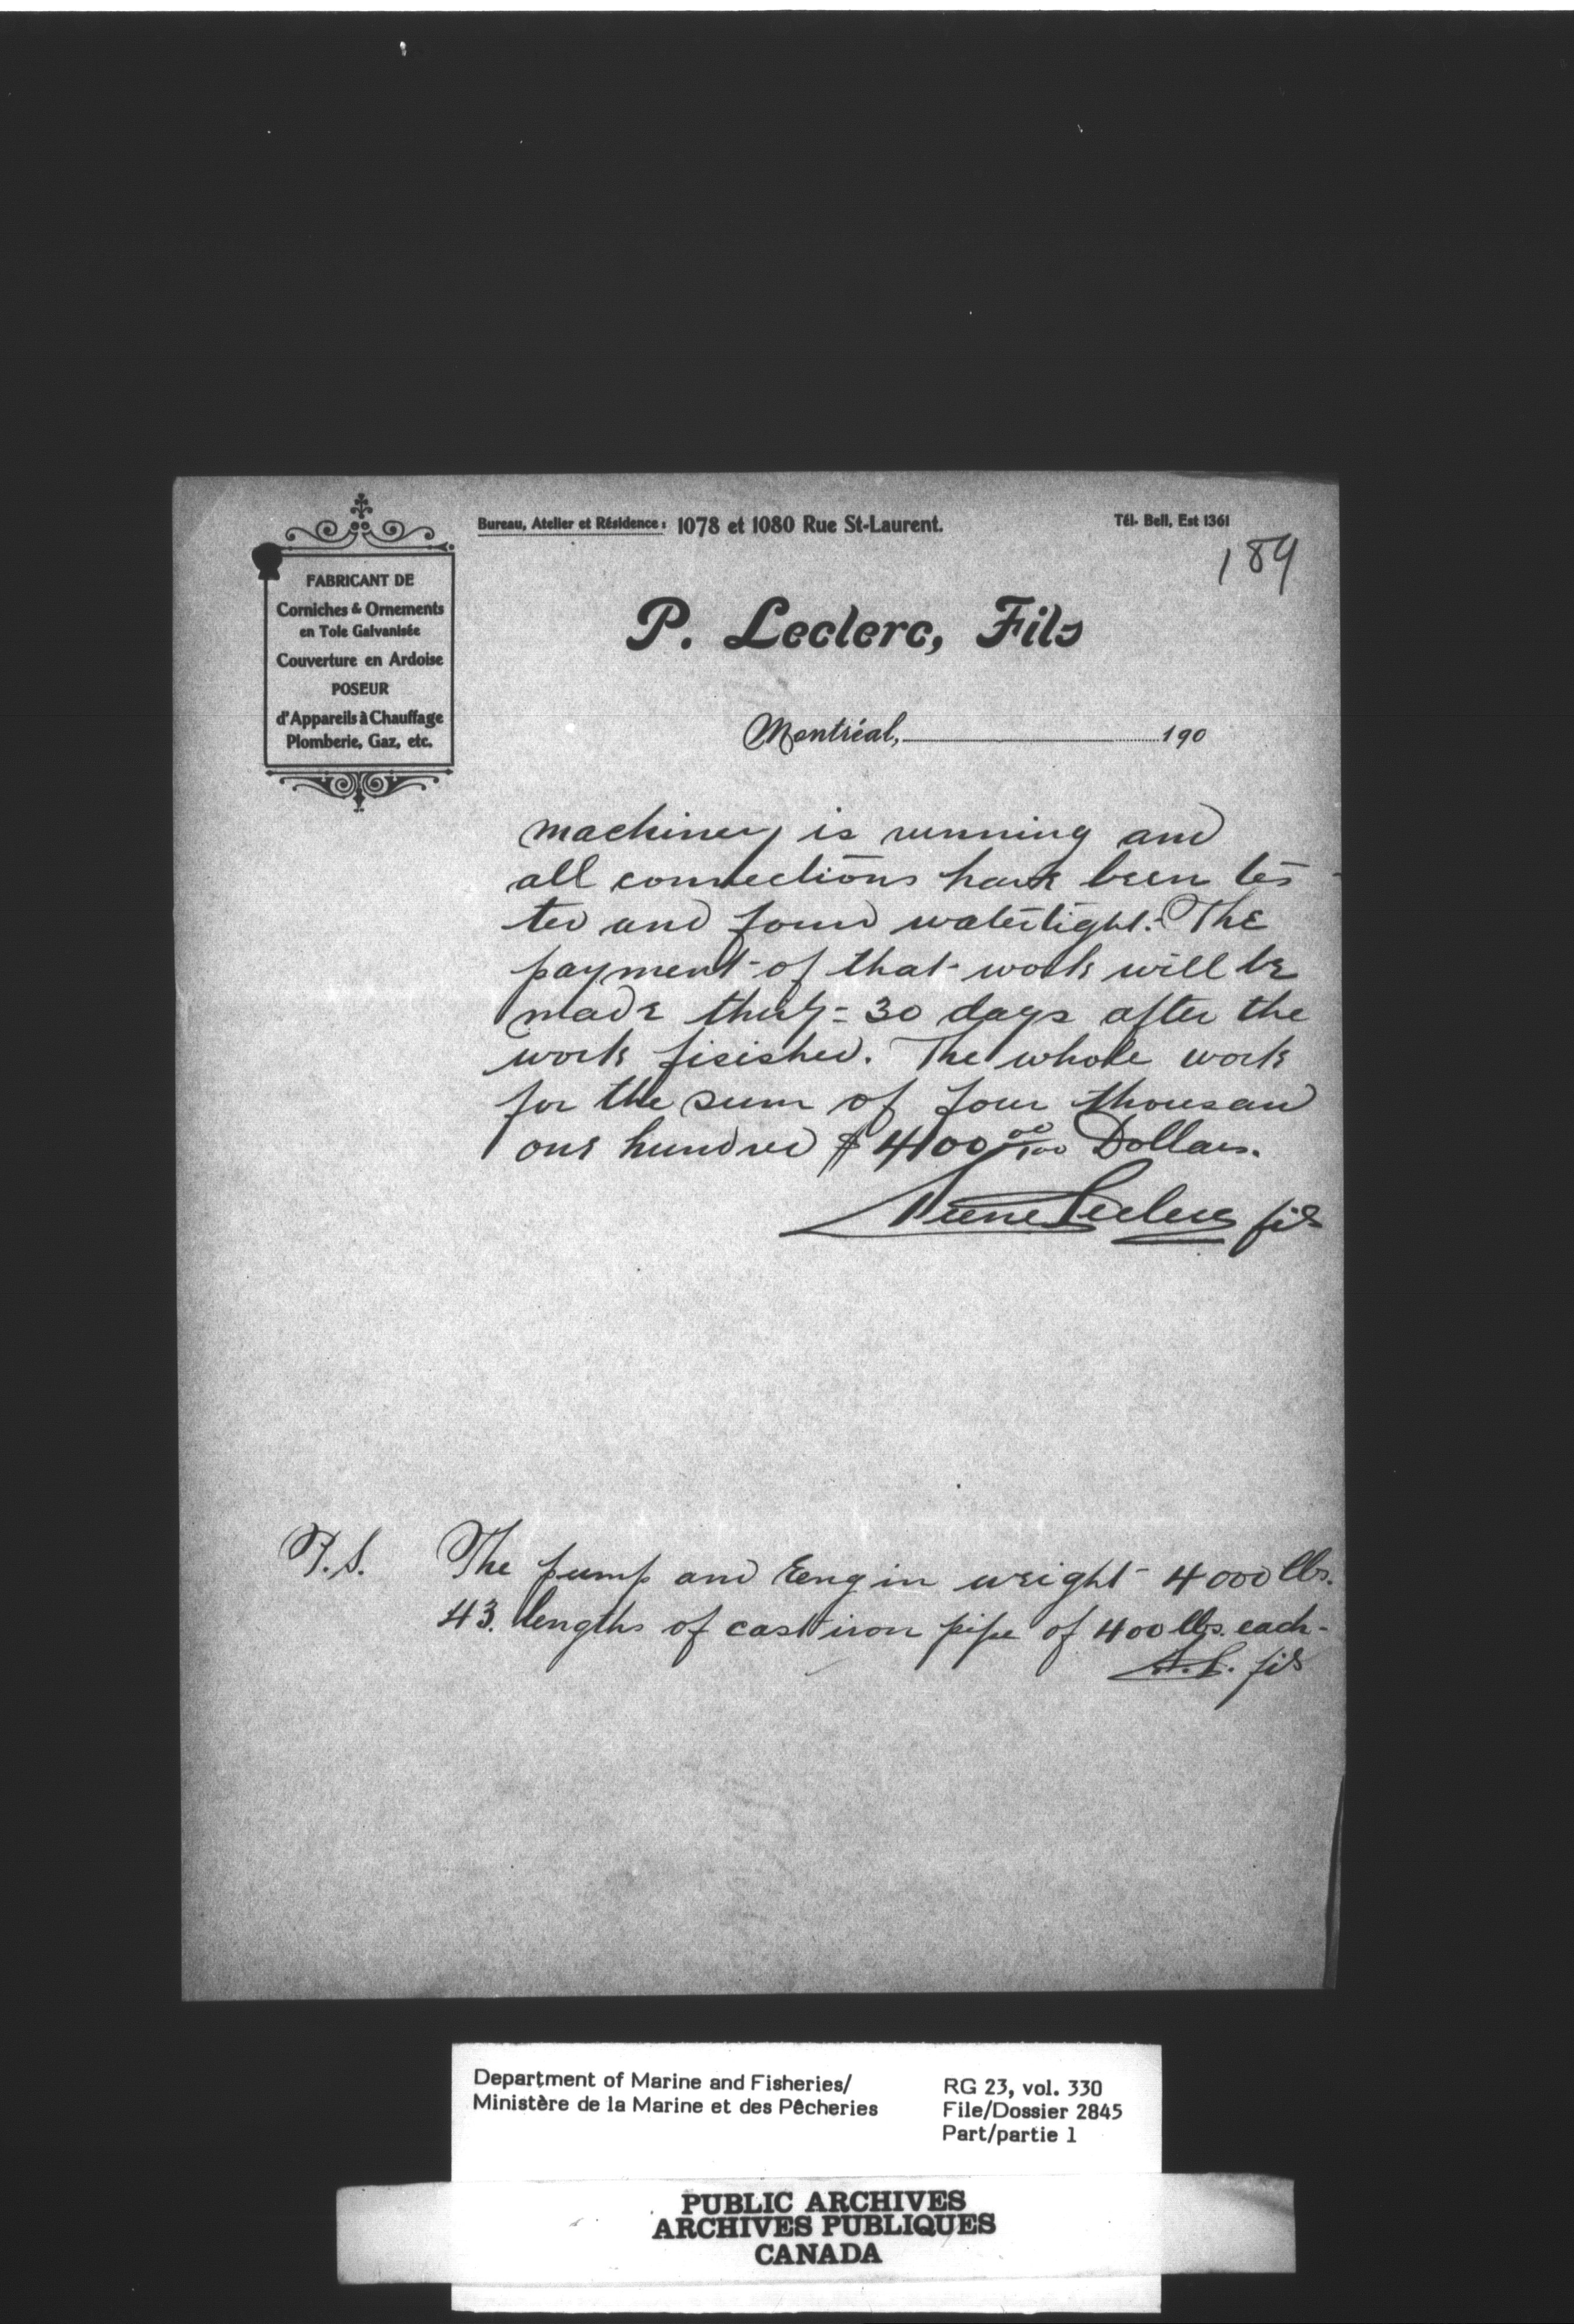 Bureau, Atelier et Résidence: 1078 et 1080 Rue St-Laurent.
Tél. Bell, Est 1361
189
FABRICANT DE
Corniches & Ornements
en Tole Galvanisée
Couverture en Ardoise
POSEUR
d'Appareils à Chauffage
Plomberie, Gaz, etc.
P. Leclerc, Fils
Montréal, 190
machinery is running and
all connections have been tes-
ted and found watertight. The
payment of that work will be
made thirty = 30 days after the
work fisished. The whole work
for the sum of four thousand
one hundred $4100 00/100 Dollars.
Pierre Leclerc fils
P.S. The pump and Eengin weight 4000 lbs.
43. lengths of cast iron pipe of 400 lbs. each-
P.L. fils
Department of Marine and Fisheries/
Ministère de la Marine et des Pêcheries
RG 23, vol. 330
File/Dossier 2845
Part/partie 1
PUBLIC ARCHIVES
ARCHIVES PUBLIQUES
CANADA